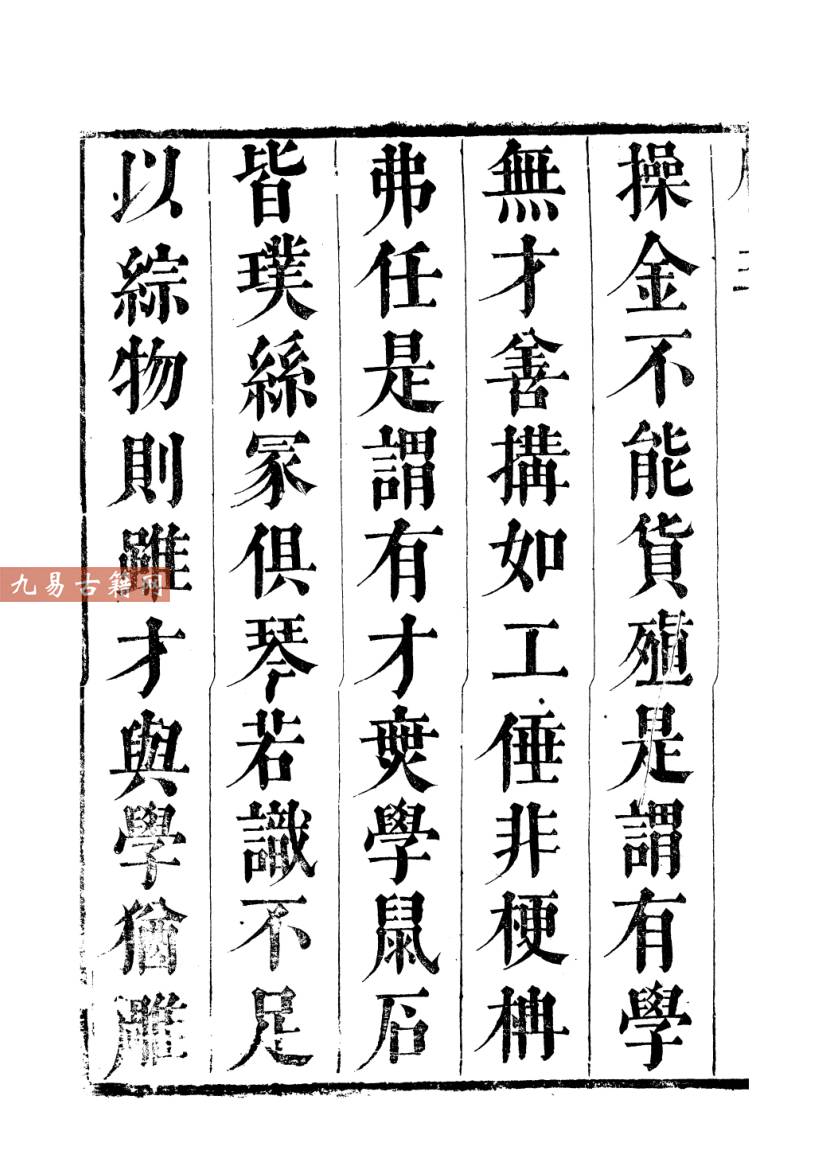 操金不能貨殖是謂有學
無才善搆如工倕非梗柟
弗任是謂有才㒇學鼠石
皆璞絲冢俱琴若識不足
以綜物則雖才與學猶雕
九易古籍网